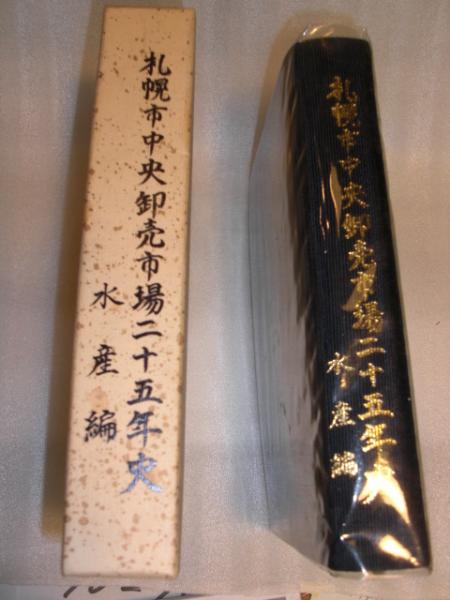 札幌市中央卸売市場二十五年史
水産編
札幌市中央卸売市場二十五年史
水産編